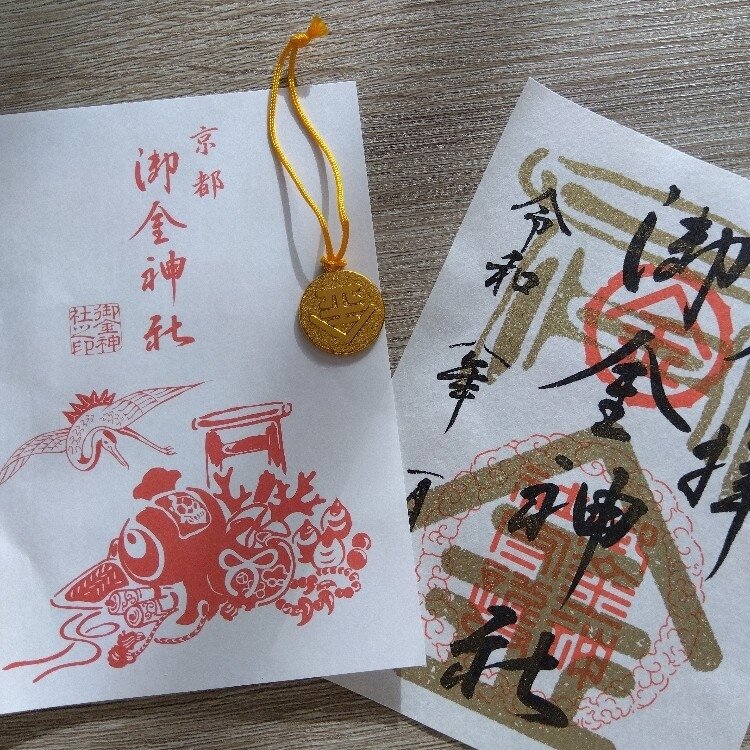 京都
御金神社
御金神
社印
拝
御金神社
令和八年
月